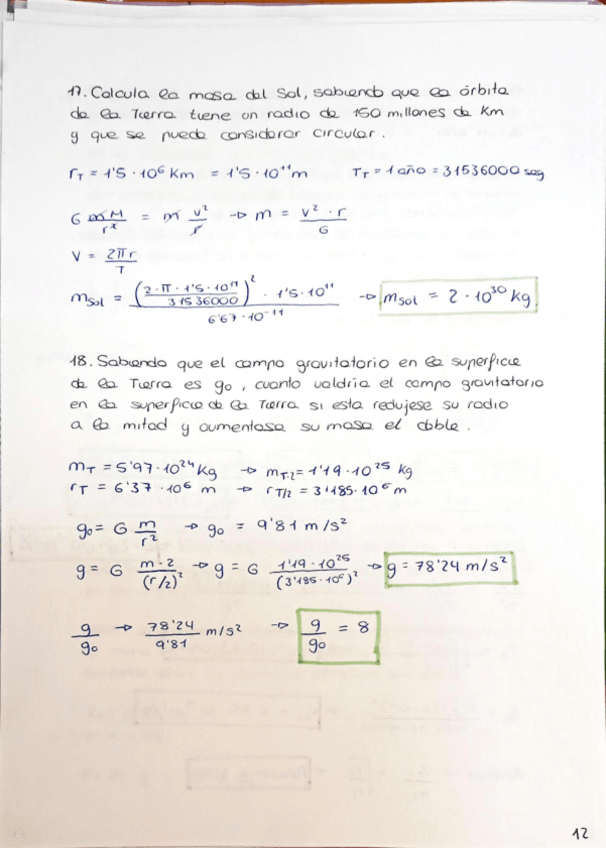 17. Calcula la masa del Sol, sabiendo que la órbita
de la Tierra tiene un radio de 150 millones de Km
y que se puede considerar circular.
rT = 1'5 · 10⁶ Km = 1'5 · 10¹¹ m TT = 1 año = 31536000 seg
G mM/r² = m v²/r → m = v² · r/G
V = 2πr/T
mSol = (2·π·1'5·10¹¹/31536000)² · 1'5·10¹¹/6'67·10⁻¹¹ → mSol = 2·10³⁰ kg
18. Sabiendo que el campo gravitatorio en la superficie
de la Tierra es g₀, cuanto valdría el campo gravitatorio
en la superficie de la Tierra si esta redujese su radio
a la mitad y aumentasa su masa el doble.
mT = 5'97·10²⁴ Kg → mT·2 = 1'19·10²⁵ Kg
rT = 6'37·10⁶ m → rT/2 = 3'185·10⁶ m
g₀ = G m/r² → g₀ = 9'81 m/s²
g = G m·2/(r/2)² → g = G 1'19·10²⁵/(3'185·10⁶)² → g = 78'24 m/s²
g/g₀ → 78'24/9'81 m/s² → g/g₀ = 8
12